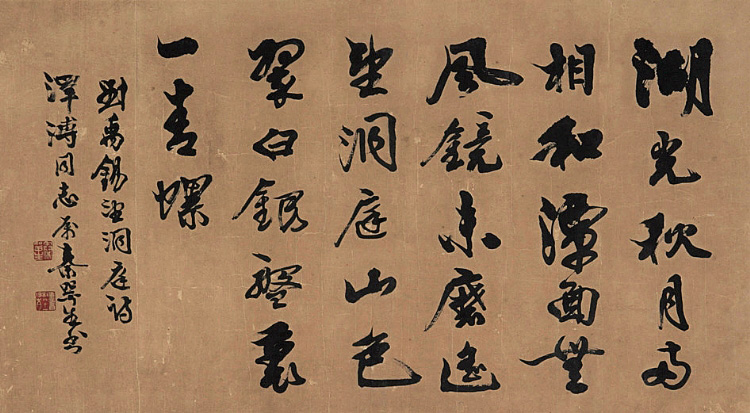 湖光秋月兩
相和潭面無
風鏡未磨遙
望洞庭山色
翠白銀盤裏
一青螺
劉禹錫望洞庭詩
澤溥同志屬秦咢生書